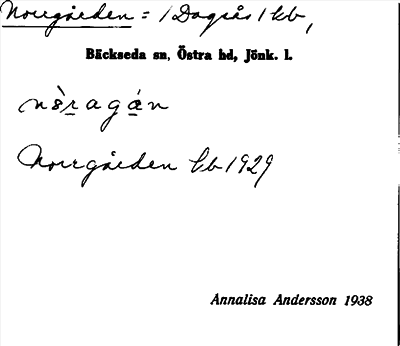 Norrgården = / Dagsås / kb,
Bäckseda sn, Östra hd, Jönk. l.
nòragán
Norrgården kb 1929
Annalisa Andersson 1938